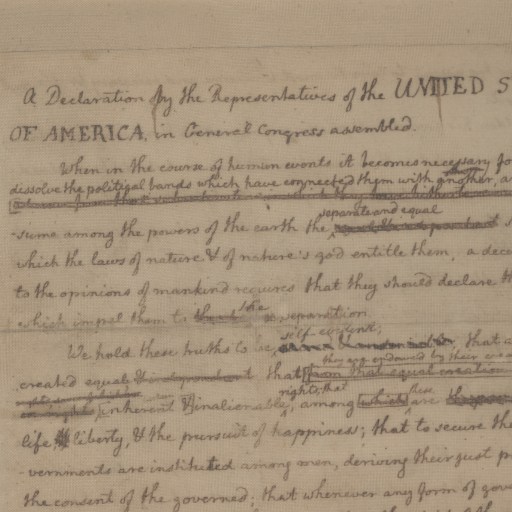 A Declaration by the Representatives of the UNITED S
OF AMERICA, in General Congress assembled.
When in the course of human events it becomes necessary fo
dissolve the political bands which have connected them with another, a
separate and equal
-sume among the powers of the earth the
which the laws of nature & of nature's god entitle them, a dece
to the opinions of mankind requires that they should declare th
the
which impel them to separation
self-evident;
We hold these truths to be that a
they are endowed by their crea
created equal that from that equal creation
rights; that
inherent & inalienable among which these are
life, liberty, & the pursuit of happiness; that to secure the
-vernments are instituted among men, deriving their just p
the consent of the governed; that whenever any form of gov